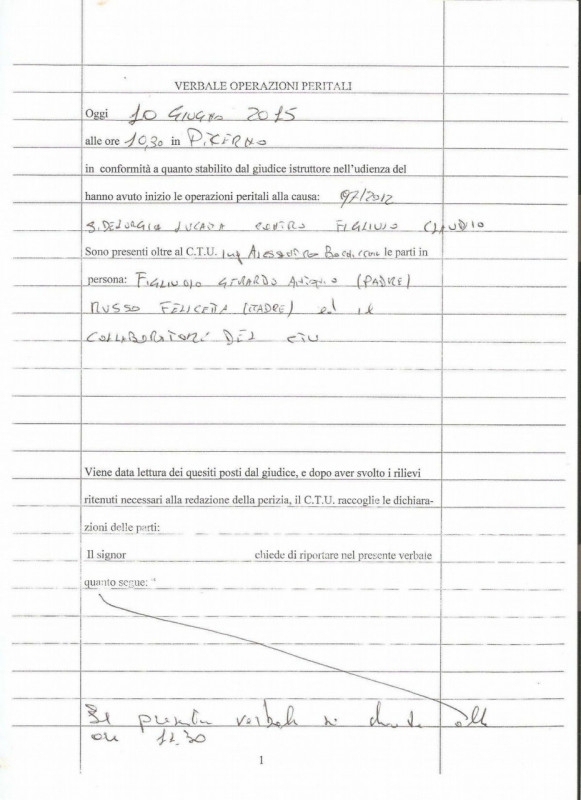 VERBALE OPERAZIONI PERITALI
Oggi 10 GIUGNO 2015
alle ore 10,30 in PICERNO
in conformità a quanto stabilito dal giudice istruttore nell'udienza del
hanno avuto inizio le operazioni peritali alla causa: 97/2012
CONTRO FIGLIUOLO CLAUDIO
Sono presenti oltre al C.T.U. Ing le parti in
persona: FIGLIUOLO GERARDO (PADRE)
RUSSO FELICETTA (MADRE) ed il
COLLABORATORE DEL CTU
Viene data lettura dei quesiti posti dal giudice, e dopo aver svolto i rilievi
ritenuti necessari alla redazione della perizia, il C.T.U. raccoglie le dichiara-
zioni delle parti:
Il signor chiede di riportare nel presente verbale
quanto segue:
Il presente verbale si chiude alle
ore 11.30
1